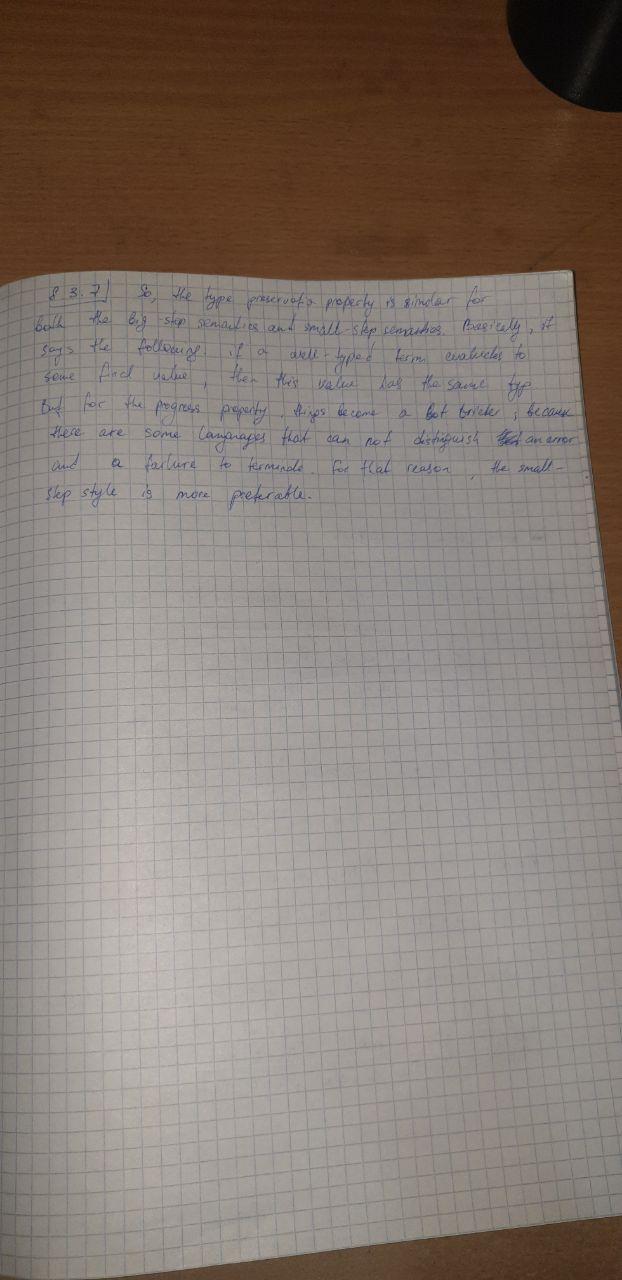 8.3.7) So, the type preservat. property is similar for
both the big-step semantics and small-step semantics. Basically, it
says the following: if a well-typed term evaluates to
some final value, then this value has the same type
But for the progress property, things become a bit trickier, because
there are some languages that can not distinguish an error
and a failure to terminate. For that reason, the small-
step style is more preferable.